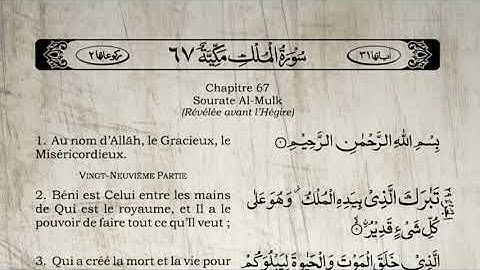 اٰیاتها ۳۱ سُوْرَةُ الْمُلْكِ مَكِّيَّةٌ ۶۷ رکوعاتها ۲
Chapitre 67
Sourate Al-Mulk
(Révélée avant l’Hégire)
1. Au nom d’Allāh, le Gracieux, le
Miséricordieux.
بِسْمِ اللّٰهِ الرَّحْمٰنِ الرَّحِيْمِ ۝۱
Vingt-Neuvième Partie
2. Béni est Celui entre les mains
de Qui est le royaume, et Il a le
pouvoir de faire tout ce qu’Il veut ;
تَبٰرَكَ الَّذِيْ بِيَدِهِ الْمُلْكُ وَهُوَ عَلٰى
كُلِّ شَيْءٍ قَدِيْرُ ۝۲
3. Qui a créé la mort et la vie pour
الَّذِيْ خَلَقَ الْمَوْتَ وَالْحَيٰوةَ لِيَبْلُوَكُمْ